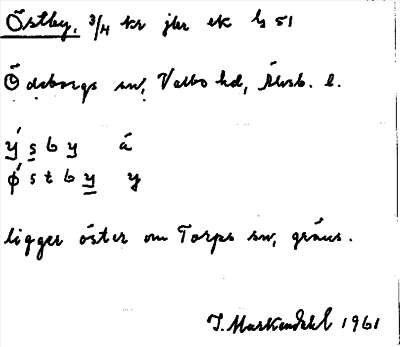 Östby, 3/4 kr jbr ek b 51
Ödeborgs sn, Valbo hd, Älvsb. l.
ý s b y á
ǿ s t b y y
ligger öster om Torps sn, gräns.
1961